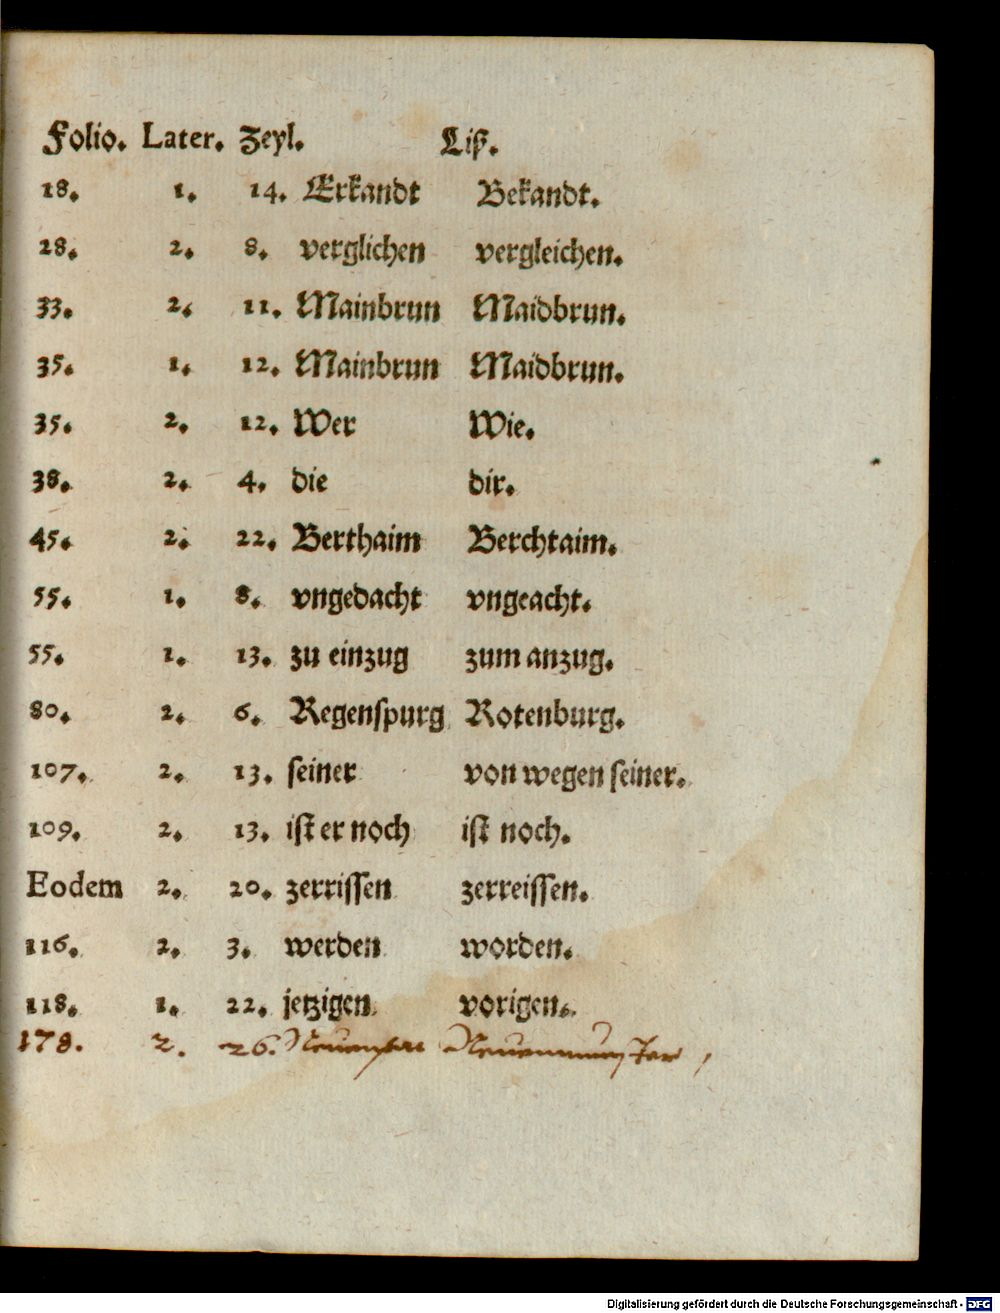 Folio. Later. Zeyl. Liß.
18. 1. 14. Erkandt Bekandt.
28. 2. 8. verglichen vergleichen.
33. 2. 11. Mainbrun Maidbrun.
35. 1. 12. Mainbrun Maidbrun.
35. 2. 12. Wer Wie.
38. 2. 4. die dir.
45. 2. 22. Berthaim Berchtaim.
55. 1. 8. vngedacht vngeacht.
55. 1. 13. zu einzug zum anzug.
80. 2. 6. Regenſpurg Rotenburg.
107. 2. 13. ſeiner von wegen ſeiner.
109. 2. 13. iſt er noch iſt noch.
Eodem 2. 20. zerriſſen zerreiſſen.
116. 2. 3. werden worden.
118. 1. 22. jetzigen vorigen.
178. 2. 26.
Digitalisierung gefördert durch die Deutsche Forschungsgemeinschaft - DFG